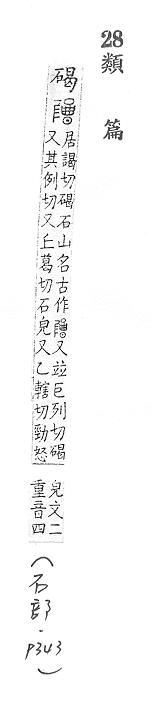 28類篇
碣
居謁切碣石山名古作又竝巨列切碣
又其例切又丘葛切石皃又乙轄切勁怒
皃文二
重音四
(石部·P343)